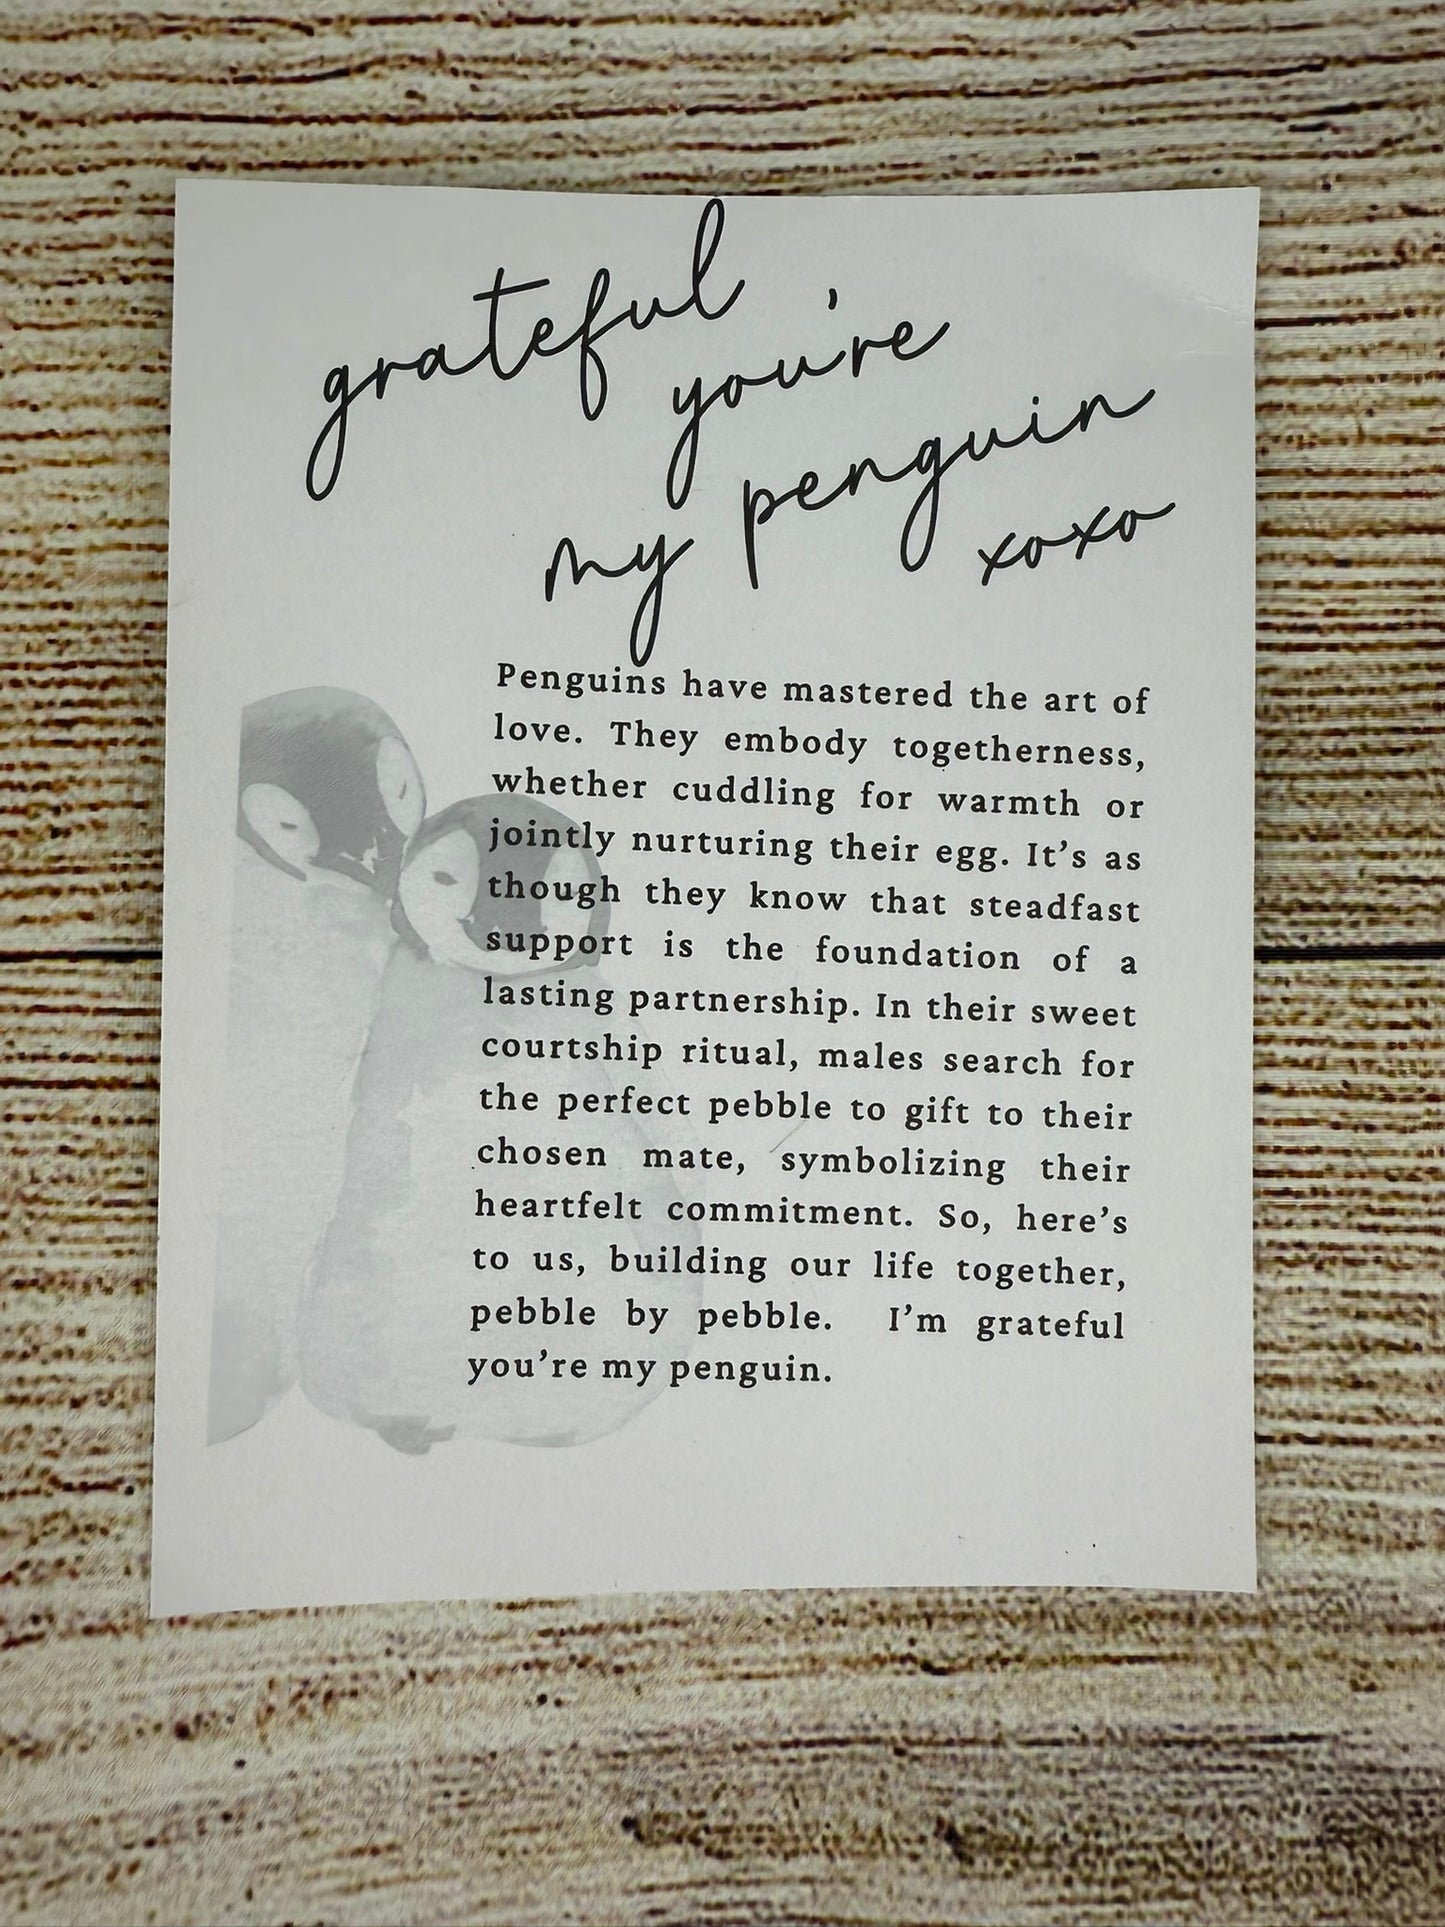 grateful
you're
my penguin
xoxo
Penguins have mastered the art of
love. They embody togetherness,
whether cuddling for warmth or
jointly nurturing their egg. It’s as
though they know that steadfast
support is the foundation of a
lasting partnership. In their sweet
courtship ritual, males search for
the perfect pebble to gift to their
chosen mate, symbolizing their
heartfelt commitment. So, here’s
to us, building our life together,
pebble by pebble. I’m grateful
you’re my penguin.